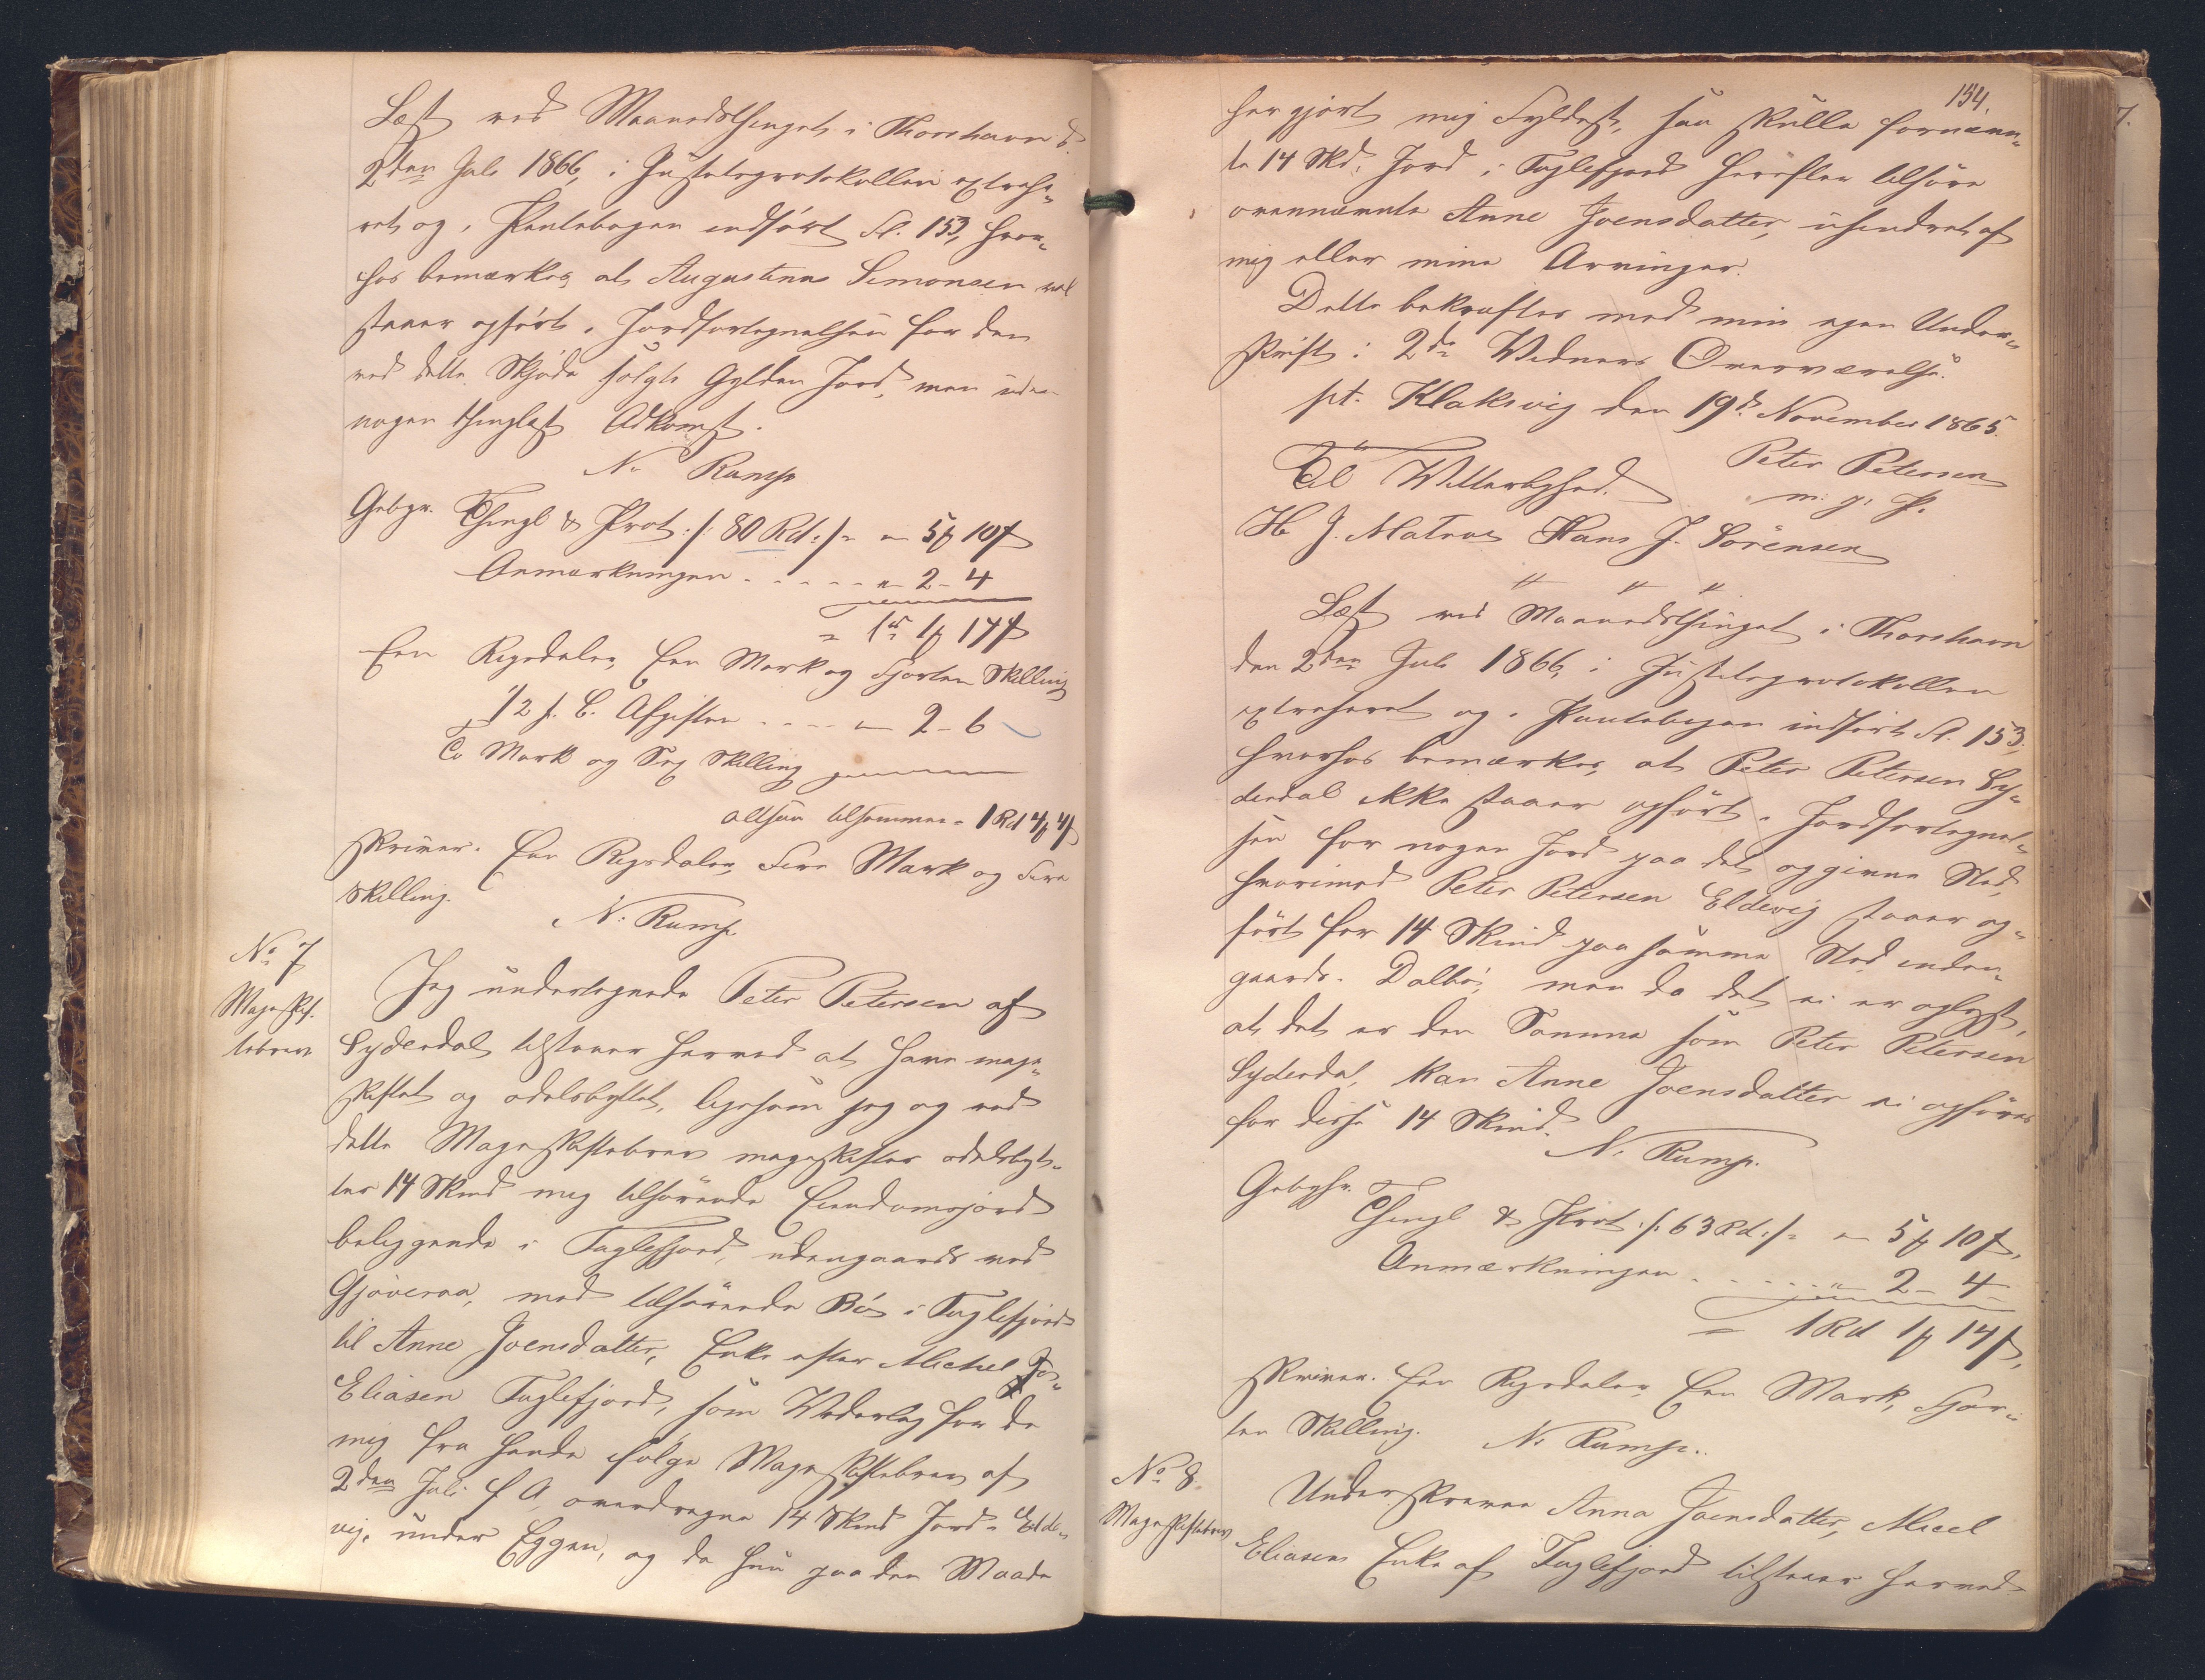 Læst ved Maanedsthinget i Thorshavn d.
2den Juli 1866, i Justitsprotokollen extrahe-
ret og i Pantebogen indført Fol. 153, hvor-
hos bemærkes, at Augustinus Simonsen vel
staaer opført i Jordfortegnelsen for den
ved dette Skjøde solgte Gylden Jord, men uden
nogen thinglæst Adkomst.
N. Rump
Gebyr. Thingl & Prot ./. 80 Rd ./. = „ 5 ₥ 10 ß
Anmærkningen . . . . . „ 2 - 4
= 1 Rd 1 ₥ 14 ß
Een Rigsdaler, Een Mark og Fjorten Skilling
1/2 p. C. Afgiften . . . . „ 2 - 6
To Mark og Sex Skilling
altsaa tilsammen = 1 Rd 4 ₥ 4 ß
skriver. Een Rigsdaler, Fire Mark og Fire
Skilling.
N. Rump
No 7
Mageskif-
tebrev
Jeg undertegnede Peter Petersen af
Syderdal tilstaaer herved at have mage-
skiftet og odelsbyttet, ligesom jeg og ved
dette Mageskiftebrev mageskifter odelsbyt-
ter 14 Skind mig tilhørende Eiendomsjord
beliggende i Fuglefjord, udengaards ved
Gjøveraa, med tilhørende Bø i Fuglefjord
til Anne Joensdatter, Enke efter Michel Jo-
Eliasen Fuglefjord, som Vederlag for de
mig fra hende ifølge Mageskiftebrev af
2den Juli f. A. overdragne 14 Skind Jord i Elde-
vig, under Eggen, og da hun paa den Maade
154.
har gjort mig Fyldest, saa skulle fornævn-
te 14 Skd. Jord i Fuglefjord herefter tilhøre
ovennævnte Anne Joensdatter, uhindret af
mig eller mine Arvinger.
Dette bekræftes med min egen Under-
skrift i 2de Vidners Overværelse.
pt. Klaksvig den 19de November 1865.
Peter Petersen
m. p. P.
Til Vitterlighed.
H J. Matras Hans J. Sörensen
„ „ „
Læst ved Maanedsthinget i Thorshavn
den 2den Juli 1866, i Justitsprotokollen
extraheret og i Pantebogen indført Fol. 153,
hvorhos bemærkes, at Peter Petersen Sy-
derdal ikke staaer opført i Jordfortegnel-
sen for nogen Jord paa det opgivne Sted,
hvorimod Peter Petersen Eldevig staaer op-
ført for 14 Skind paa samme Sted inden-
gaards i Dalbø, men da det ei er oplyst,
at det er den Samme som Peter Petersen
Syderdal, kan Anne Joensdatter ei opføres
for disse 14 Skind.
N. Rump.
Gebyhr.
Thingl & Prot ./. 63 Rd ./. = „ 5 ₥ 10 ß,
Anmærkningen . . . . . „ 2 - 4
= 1 Rd 1 ₥ 14 ß,
skriver. Een Rigsdaler, Een Mark, Fjor-
ten Skilling. N. Rump.
No 8.
Mageskiftebrev
Underskrevne Anna Joensdatter, Micel
Eliasens Enke af Fuglefjord tilstaaer herved